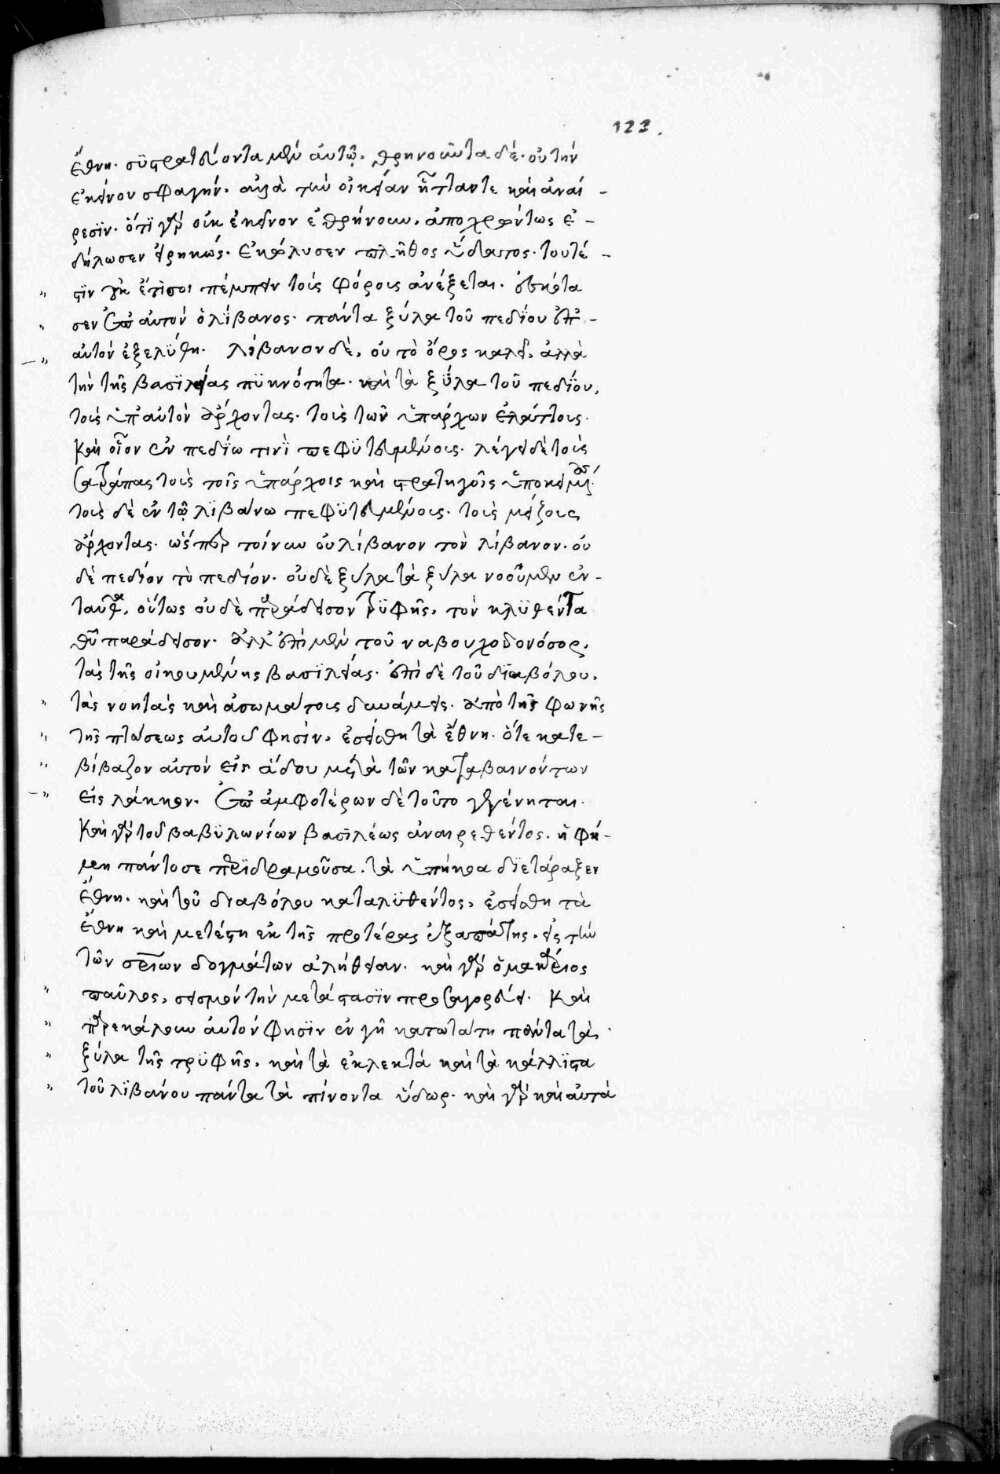 123.
ἔθνη· συστρατεύοντα μὲν αὐτῷ, θρηνοῦντα δέ· οὐ τὴν
ἐκείνου σφαγήν· ἀλλὰ τὴν οἰκείαν ἧτταν τε καὶ ἀναί-
ρεσιν· ὅτι γὰρ οὐκ ἐκεῖνον ἐθρήνουν, ἀποχρώντως ἐ-
δήλωσεν εἰρηκώς· ἐκώλυσεν πλῆθος ὕδατος· τουτέ-
στιν γῆ ἐτήσιοι πέμπειν τοὺς φόρους ἀνέξεται· ἐσκότα
σεν ἐπ' αὐτὸν ὁ λίβανος· πάντα ξύλα τοῦ πεδίου ἐπ'
αὐτὸν ἐξελύθη· λίβανον δὲ, οὐ τὸ ὄρος καλεῖ, ἀλλὰ
τὴν τῆς βασιλείας πυκνότητα· καὶ τὰ ξύλα τοῦ πεδίου,
τοὺς ὑπ' αὐτὸν ἄρχοντας· τοὺς τῶν ὑπάρχων ἐλάττους·
καὶ οἷον ἐν πεδίῳ τινὶ πεφυτευμένους· λέγει δὲ τοὺς
σατράπας τοὺς τοῖς ὑπάρχοις καὶ στρατηγοῖς ὑποκειμένους·
τοὺς δὲ ἐν τῷ λιβάνῳ πεφυτευμένους· τοὺς μείζους
ἄρχοντας· ὥσπερ τοίνυν οὐ λίβανον τὸν λίβανον· οὐ
δὲ πεδίον τὸ πεδίον· οὐδὲ ξύλα τὰ ξύλα νοοῦμεν ἐν-
ταῦθα, οὕτως οὐδὲ παράδεισον τρυφῆς, τὸν κληθέντα
θεοῦ παράδεισον· ἀλλ' ἐπὶ μὲν τοῦ ναβουχοδονόσορ,
τὰς τῆς οἰκουμένης βασιλείας· ἐπὶ δὲ τοῦ διαβόλου,
τὰς νοητὰς καὶ ἀσωμάτους δυνάμεις· ἀπὸ τῆς φωνῆς
τῆς πτώσεως αὐτοῦ φησὶν, ἐσείσθη τὰ ἔθνη· ὅτε κατε-
βίβαζον αὐτὸν εἰς ᾅδου μετὰ τῶν καταβαινόντων
εἰς λάκκον· ἐπ' ἀμφοτέρων δὲ τοῦτο γεγένηται·
καὶ γὰρ τοῦ βαβυλωνίων βασιλέως ἀναιρεθέντος, ἡ φή-
μη πάντοσε περιδραμοῦσα, τὰ ὑπήκοα διετάραξεν
ἔθνη· καὶ τοῦ διαβόλου καταλυθέντος, ἐσείσθη τὰ
ἔθνη καὶ μετέστη ἐκ τῆς προτέρας ἐξαπάτης, εἰς τὴν
τῶν σωτηρίων δογμάτων ἀλήθειαν· καὶ γὰρ ὁ μακάριος
παῦλος, σεισμὸν τὴν μετάστασιν προσαγορεύει· καὶ
παρεκάλουν αὐτὸν φησὶν ἐν γῇ κατωτάτῃ πάντα τὰ
ξύλα τῆς τρυφῆς, καὶ τὰ ἐκλεκτὰ καὶ τὰ κάλλιστα
τοῦ λιβάνου πάντα τὰ πίνοντα ὕδωρ· καὶ γὰρ καὶ αὐτὰ